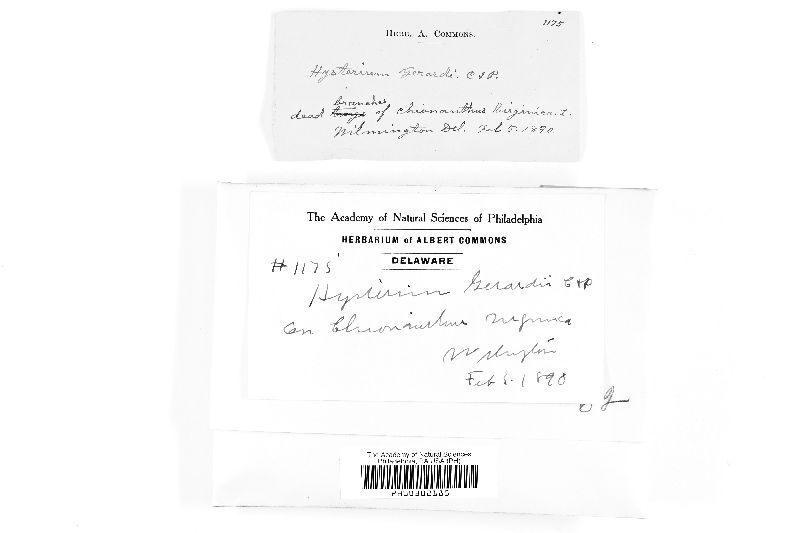 1175
Herb. A. Commons.
Hysterium Gerardi. C & P.
branches
dead of Chionanthus Virginica. L.
Wilmington Del. Feb 5. 1890
The Academy of Natural Sciences of Philadelphia
HERBARIUM of ALBERT COMMONS
DELAWARE
# 1175
Hysterium Gerardii C & P
on Chionanthus Virginica
Wilmington
Feb 5. 1890
The Academy of Natural Sciences
Philadelphia, PA USA (PH)